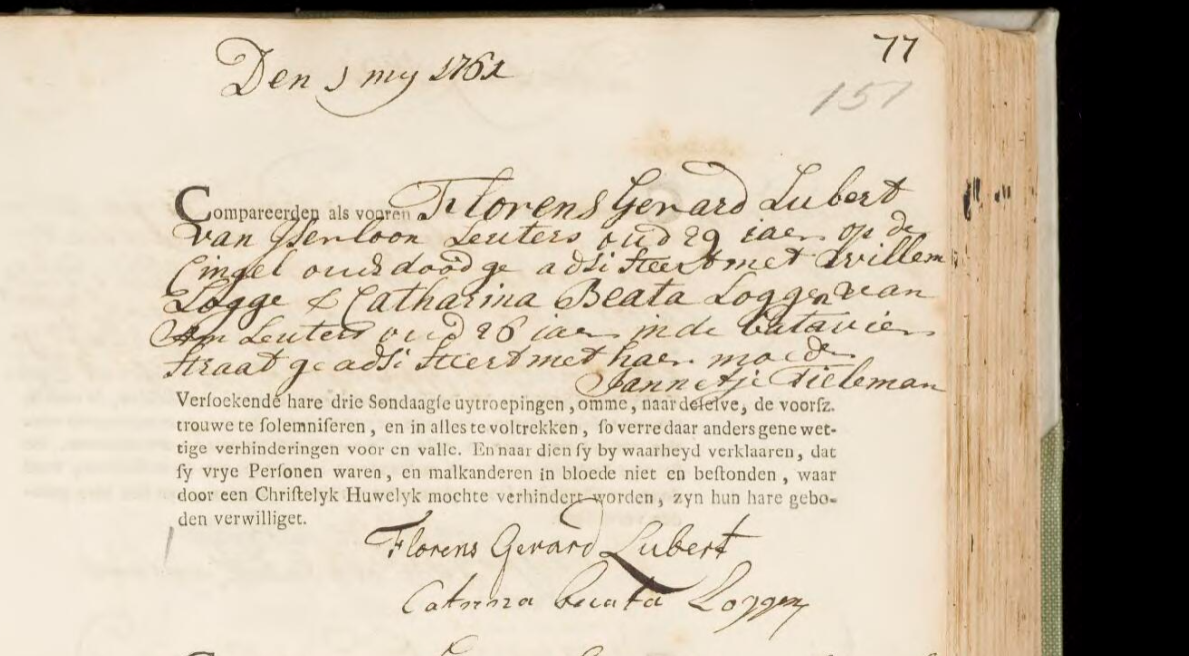 77
Den 1 my 1761
151
Compareerden als vooren Florens Gerard Lubert
van Iserloon Leuters oud 29 iaer op de
Cingel ouds dood ge adsisteert met Willem
Logge & Catharina Beata Loggen van
Am Leuters oud 26 iaer inde batavier
straat ge adsisteert met haer moeder
Jannetje Tieleman
Verſoekende hare drie Sondaagſe uytroepingen, omme, naar deſelve, de voorſz.
trouwe te ſolemniſeren, en in alles te voltrekken, ſo verre daar anders gene wet-
tige verhinderingen voor en valle. En naar dien ſy by waarheyd verklaaren, dat
ſy vrye Perſonen waren, en malkanderen in bloede niet en beſtonden, waar
door een Chriſtelyk Huwelyk mochte verhindert worden, zyn hun hare gebo-
den verwilliget.
Florens Gerard Lubert
Catrina beata Loggen